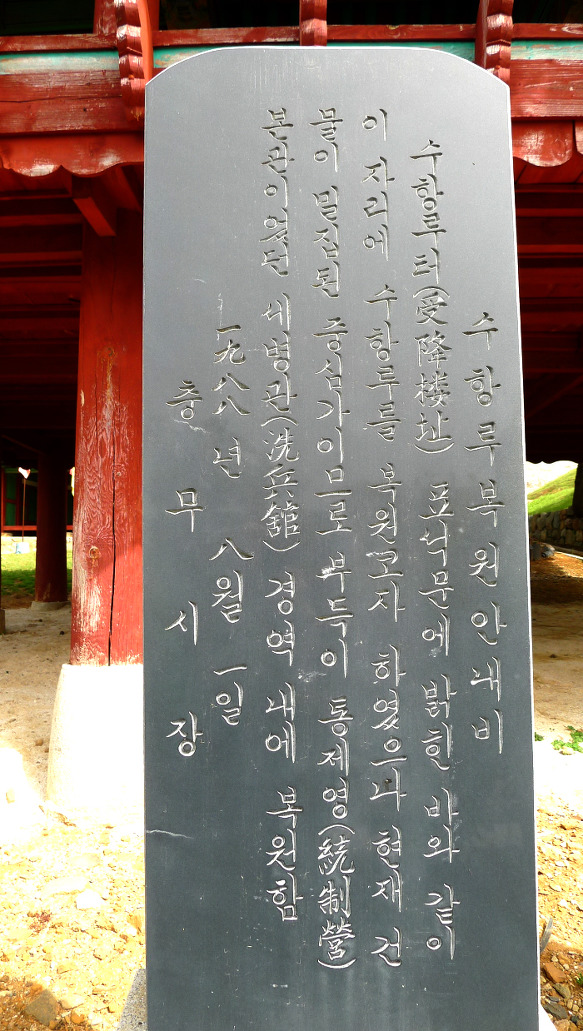 수항루복원안내비
수항루터(受降楼址) 표석문에 밝힌 바와 같이
이 자리에 수항루를 복원코자 하였으나 현재 건
물이 밀집된 중심가이므로 부득이 통제영(統制營)
본관이였던 세병관(洗兵舘) 경역 내에 복원함
一九八八년 八월 一일
충무시장